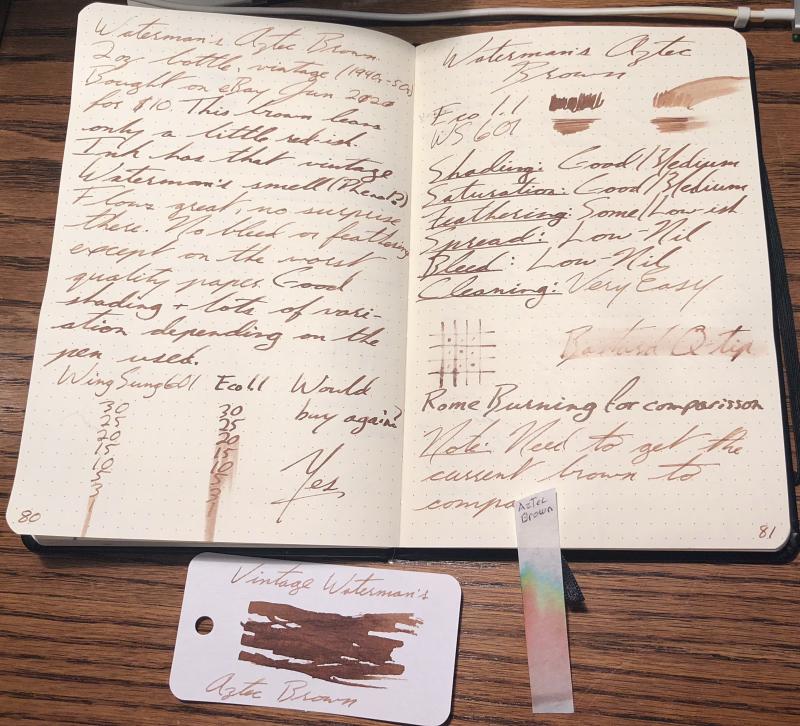 Waterman's Aztec Brown.
2oz bottle, vintage (1940s-50s)
Bought on eBay Jun 2020
for $10. This brown leans
only a little red-ish.
Ink has that vintage
Waterman's smell (Phenol?)
Flows great, no surprise
there. No bleed or feathering
except on the worst
quality paper. Good
shading + lots of vari-
ation depending on the
pen used.
WingSung601 Eco1.1 Would
buy again?
Yes
30
25
20
15
10
5
30
25
20
15
10
5
80
Waterman's Aztec
Brown
Eco 1.1
WS 601
Shading: Good/Medium
Saturation: Good/Medium
Feathering: Some/Low-ish
Spread: Low-Nil
Bleed: Low-Nil
Cleaning: Very Easy
Bastard Q-tip
Rome Burning for comparisson
Note: Need to get the
current brown to
compa
81
Aztec
Brown
Vintage Waterman's
Aztec Brown